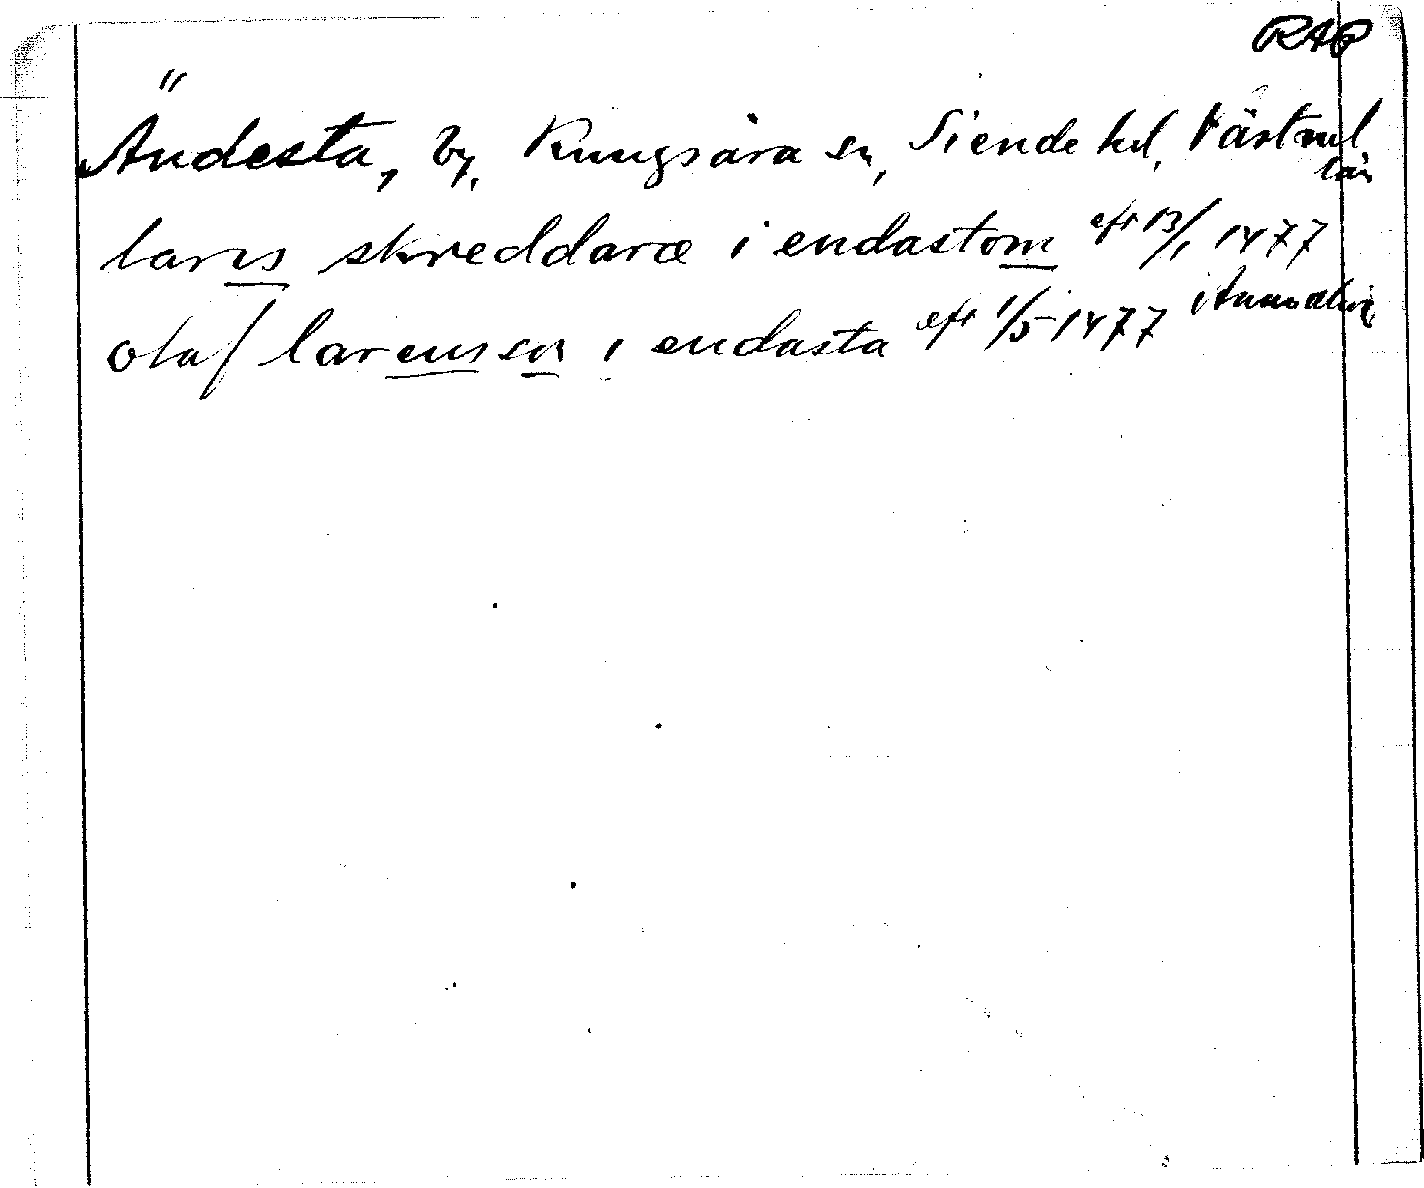 RAP
Ändesta, by, Kungsåra sn, Siende hd, Västml
län
larns skreddaræ i endastom eft 13/1 1477
olaf larensson i endasta eft 1/5 1477